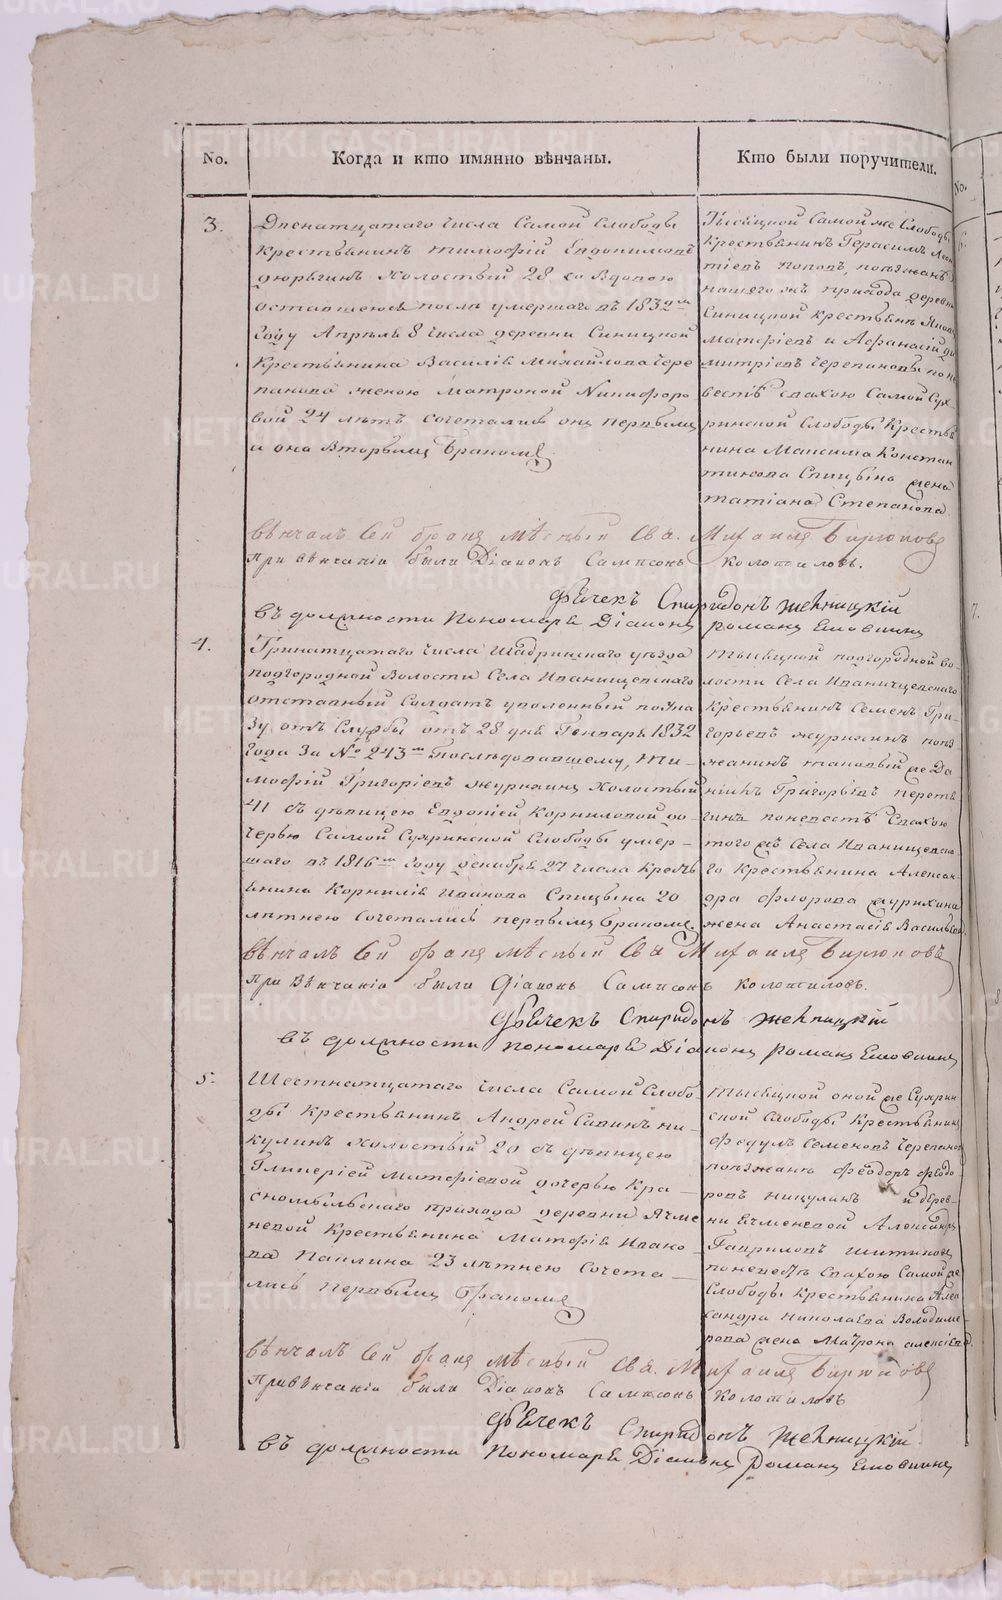 No.
Когда и кто имянно вѣнчаны.
Кто были поручители.
No.
3.
Двенатцатаго числа Самой Слободы
крестьянинъ Тимофій Евдокимовъ
холостый 28 со вдовою
оставшеюся послѣ умершаго въ 1832мъ
году Апрѣля 8 числа деревни Синицкой
крестьянина Василія Михайлова Чере
панова женою Матроной Никифоро
вой 24 лѣтъ сочетались онъ первымъ
и она вторымъ бракомъ
Тысяцкой Самой же Слободы
крестьянинъ Герасимъ Леон
тіевъ Поповъ, поѣзжанъ
нашего жъ прихода деревни
Синицкой крестьянъ Яковъ
Матфіевъ и Афанасій Ди
митріевъ Черепановы по не
вестѣ свахою Самой Сух
ринской Слободы крестья
нина Максима Констан
тинова Спицына жена
Татіана Степанова
вѣнчалъ сей бракъ мѣстный Свя. Михаилъ Бирюковъ
При вѣнчаніи были Діаконъ Сампсонъ Колотиловъ.
Дьячекъ Спиридонъ
въ должности Пономаря Діаконъ Романъ
4.
Тринатцатаго числа Шадринскаго уѣзда
подгородной Волости Села Иванищевскаго
отставный Солдатъ уволенный по Ука
зу отъ Службы отъ 28 дня Генваря 1832
года За № 243м Послѣдовавшему, Ти-
мофій Григоріевъ Журихинъ холостый
41 съ дѣвицею Евдокіей Корниловой до-
черью Самой Сухринской Слободы умер-
шаго въ 1816мъ году Декабря 27 числа кресть
янина Корнилія Иванова Спицына 20
лѣтнею сочетались первымъ бракомъ.
Тысяцкой подгородной Во
лости Села Иванищевскаго
крестьянинъ Семенъ Гри-
горьевъ Журихинъ поѣз
жанинъ таковый же Да
ніилъ Григорьевъ
по невестѣ свахою
того жъ Села Иванищевска
го крестьянина Алексан
дра Флорова Журихина
жена Анастасія Васильева
вѣнчалъ сей бракъ мѣстный Свя Михаилъ Бирюковъ
При вѣнчаніи были Діаконъ Сампсонъ Колотиловъ.
Дьячекъ Спиридонъ
въ должности пономаря Діаконъ Романъ
5.
Шестнатцатаго числа Самой Слобо
ды крестьянинъ Андрей Савинъ Ни-
кулинъ холостый 20 съ дѣвицею
Гликеріей Матфіевой дочерью Кра-
сномыльскаго прихода деревни Ячме
невой крестьянина Матфія Ивано
ва Паклина 23 лѣтнею сочета-
лись первымъ бракомъ
Тысяцкой оной же Сухрин
ской Слободы крестьянинъ
Федулъ Семеновъ Черепановъ
поѣзжанъ Феодоръ Феодо
ровъ Никулинъ и дерев-
ни Ячменевой Александръ
Гавриловъ
по невестѣ свахою Самой же
Слободы крестьянина Алек
сандра Николаева Володиме
рова жена Матрона Алексіева
вѣнчалъ сей бракъ мѣстный Свя. Михаилъ Бирюковъ
При вѣнчаніи были Діаконъ Сампсонъ Колотиловъ
Дьячекъ Спиридонъ
въ должности Пономаря Діаконъ Романъ